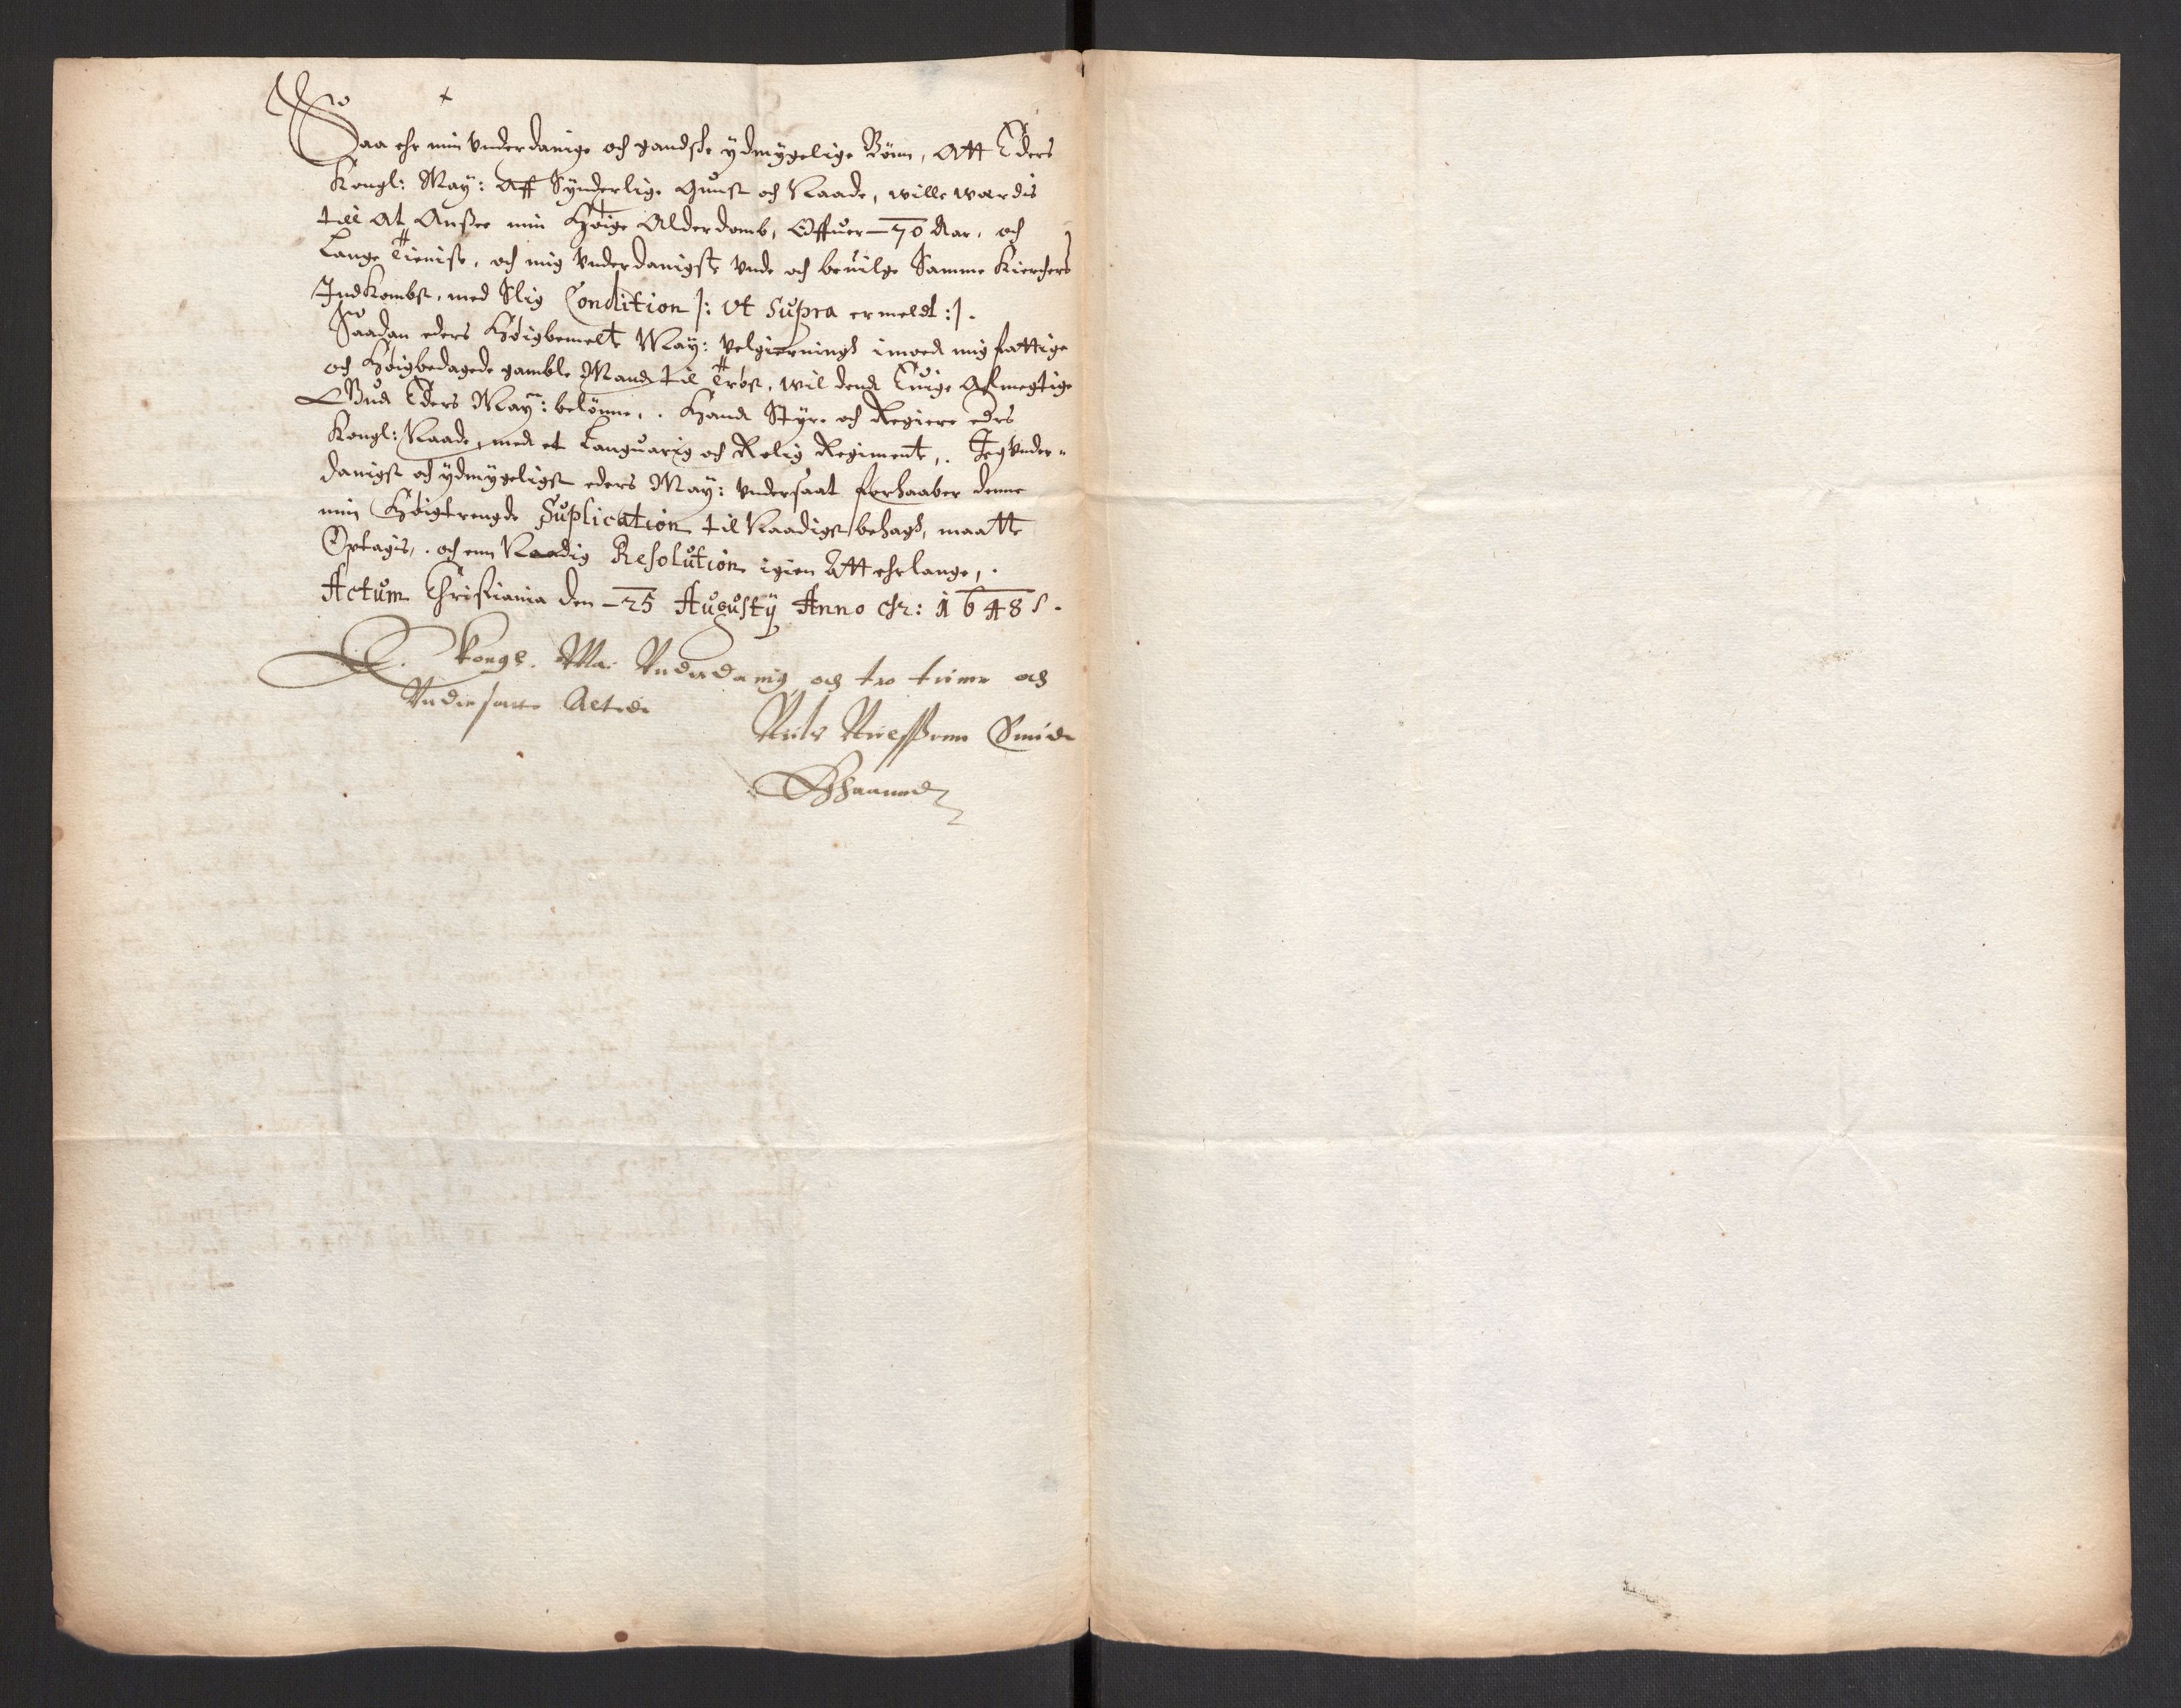 Saa ehr min underdanige och gandske ydmygelige Bönn, Att Eders
Kongl: May: Aff Synderlige gunst och Naade, wille wærdis
till At Ansee min Høige Alderdomb, Offuer 70 Aar, och
Lange Tieniste, och mig underdanigste unde och beuilge Samme Kierchers
Indkombst, med Slig Condition |: Vt Supra ermeldt :|.
Saadan eders Høigbemelte May: velgierningh imoed mig fattige
och Høigbedagede gamble Mand til Trøst, wil dend Euige Almegtige
Gud Eders May: belönne, . Hand Styre och Regiere eders
Kongl: Naade, med et Languarig och Rolig Regimente, . Jeg under-
danigst och ydmygeligst eders May: undersaat forhaaber denne
min Høigtrengde Suplication til Naadigst behagh, maatte
Optagis, . och enn Naadig Resolution igien Att erlange, .
Actum Christiania den 25 Augustij Anno Chr: 1648.
E. Kongl. Ma: Underdanig och tro tiener och
Undersaatte Altid
Niels Nielssenn Smid
Ehaannd